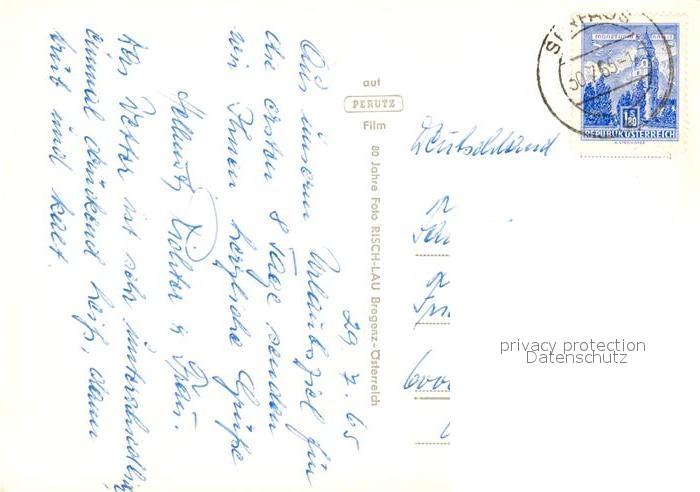 29. 7. 65
Aus unserm Urlaubsziel für
die ersten 8 Tage senden
wir Ihnen herzliche Grüße
Hellmuth Richter u. Frau.
Das Wetter ist sehr unterschiedlich
einmal drückend heiß, dann
trüb und kalt.
auf
PERUTZ
Film
80 Jahre Foto RISCH-LAU Bregenz-Österreich
30.7.65-1
MÜNZTURM
REPUBLIK ÖSTERREICH
Deutschland
privacy protection
Datenschutz